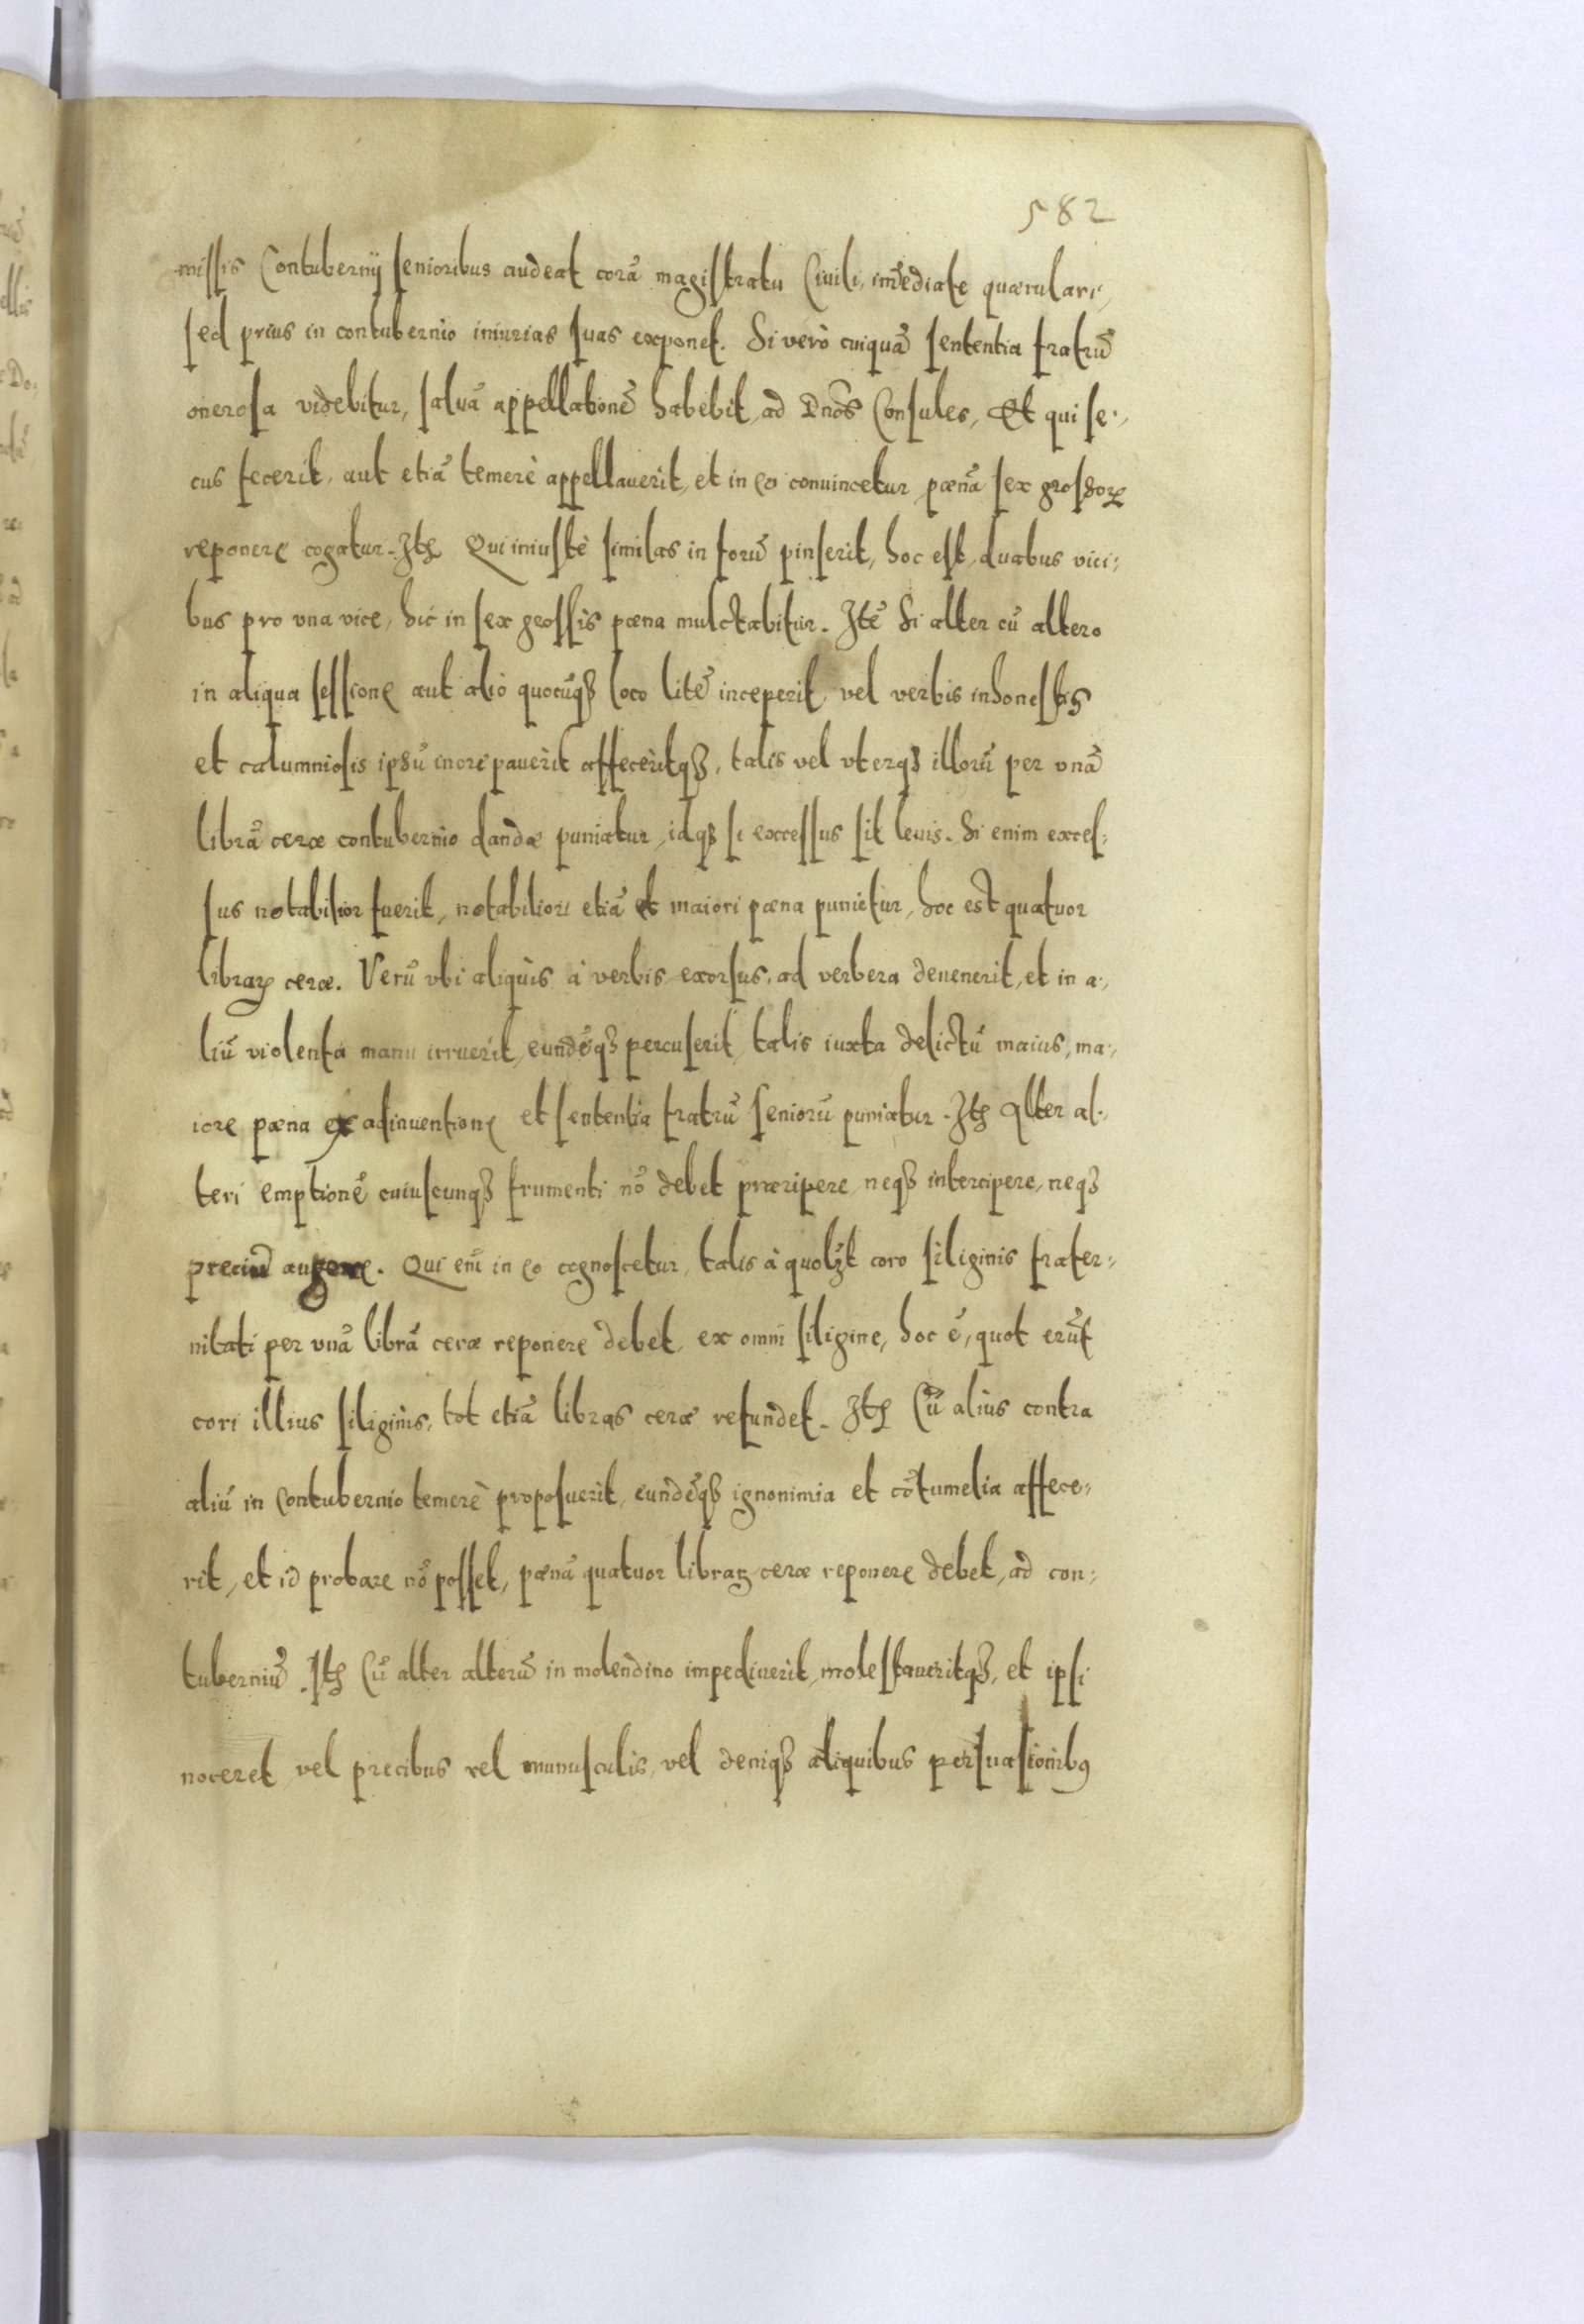 582
missis Contubernij senioribus audeat corā magistratu Ciuili, im̄ediate quærulari,
sed prius in contubernio iniurias suas exponet. Si verò cuiquā sententia fratrū
onerosa videbitur, saluā appellationē habebit, ad Dnōs Consules, Et qui se:,
cus fecerit, aut etiā temerè appellauerit, et in eo conuincetur, pænā sex grossorꝝ
reponere cogatur. Itē Qui iniustè similas in forū pinserit, hoc est, duabus vici:
bus pro vna vice, hic in sex grossis pæna mulctabitur. Itē Si alter cū altero
in aliqua sessione aut alio quocūqꝫ loco litē inceperit, vel verbis inhonestis
et calumniosis ipsū increpauerit affeceritqꝫ, talis vel vterqꝫ illorū per vnā
librā ceræ contubernio dandæ puniatur, idqꝫ si excessus sit leuis. Si enim exces:
sus notabilior fuerit, notabiliori etiā et maiori pæna punietur, hoc est quatuor
librarꝝ ceræ. Verū vbi aliquis à verbis exorsus, ad verbera deuenerit, et in a:,
liū violenta manu irruerit, eundēqꝫ percuserit, talis iuxta delictū maius, ma:,
iore pæna ex adinuentione et sententia fratrū seniorū puniatur. Itē Alter al:,
teri emptionē cuiuscunqꝫ frumenti nō debet præripere, neqꝫ intercipere, neqꝫ
preciū augere. Qui enī in eo cognoscetur, talis à quolꝫt coro siliginis frater:
nitati per vnā librā ceræ reponere debet, ex omni siligine, hoc ē, quot erūt
cori illius siliginis, tot etiā libras ceræ refundet. Itē Cū alius contra
aliū in Contubernio temerè proposuerit, eundēqꝫ ignonimia et cōtumelia affece:
rit, et id probare nō posset, pænā quatuor librarꝝ ceræ reponere debet, ad con:
tuberniū. Itē Cū alter alterū in molendino impediuerit, molestaueritqꝫ, et ipsi
noceret vel precibus vel munusculis, vel deniqꝫ aliquibus persuasionibꝯ